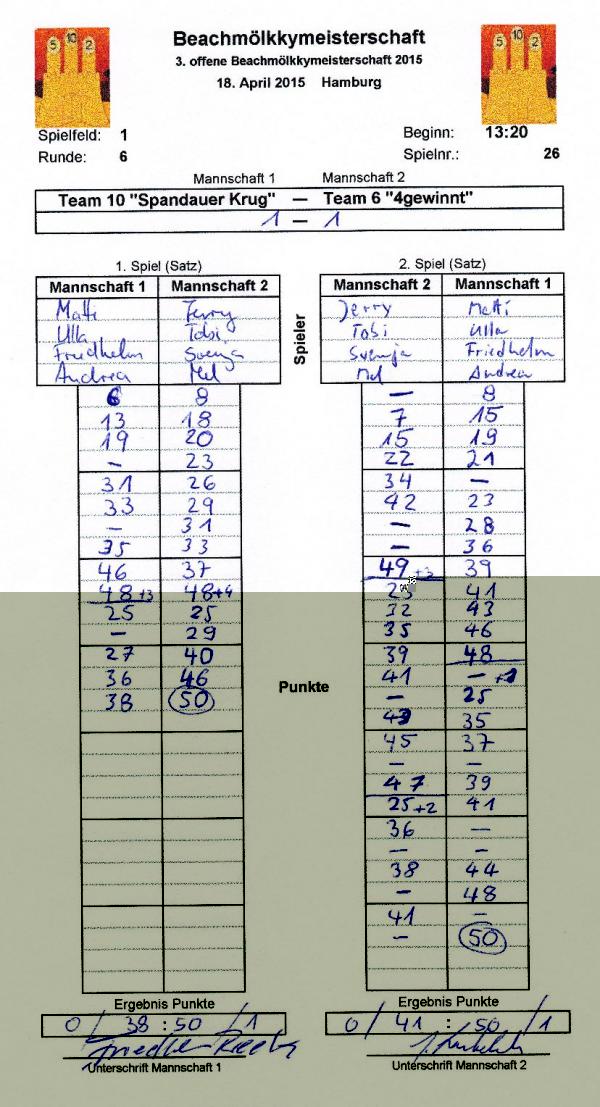 5 10 2
Beachmölkkymeisterschaft
5 10 2
3. offene Beachmölkkymeisterschaft 2015
18. April 2015 Hamburg
Spielfeld: 1 Beginn: 13:20
Runde: 6 Spielnr.: 26
Mannschaft 1 Mannschaft 2
Team 10 "Spandauer Krug" — Team 6 "4gewinnt"
1 — 1
1. Spiel (Satz) 2. Spiel (Satz)
Mannschaft 1 Mannschaft 2 Spieler Mannschaft 2 Mannschaft 1
Matti Jerry Jerry Matti
Ulla Tobi Tobi Ulla
Friedhelm Svenja Svenja Friedhelm
Andrea Mel Mel Andrea
6 8 — 8
13 18 7 15
19 20 15 19
— 23 22 21
31 26 34 —
33 29 42 23
— 31 — 28
35 33 — 36
46 37 49 +3 39
48 +3 48 +4 25 41
25 25 32 43
— 29 35 46
27 40 39 48
36 46 41 —
38 50 — 25
Punkte
43 35
45 37
— —
47 39
25 +2 41
36 —
— —
38 44
— 48
41 —
— 50
Ergebnis Punkte Ergebnis Punkte
0 / 38 : 50 / 1 0 / 41 : 50 / 1
Unterschrift Mannschaft 1 Unterschrift Mannschaft 2